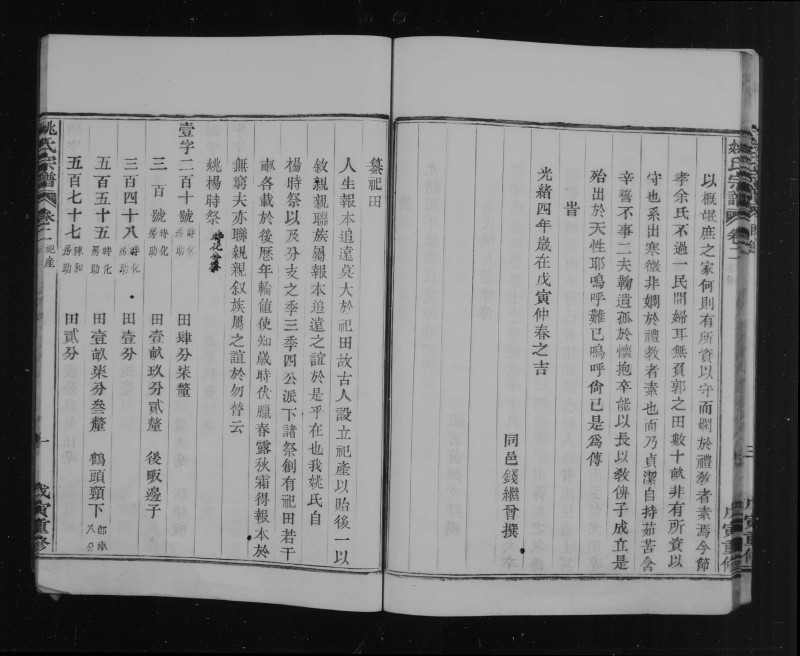 姚氏宗譜
卷二
三
戊寅重修
以概氓庶之家何則有所資以守而嫻於禮教者素焉今節
孝余氏不過一民間婦耳無負郭之田數十畝非有所資以
守也系出寒微非嫻於禮教者素也而乃貞潔自持茹苦含
辛誓不事二夫鞠遺孤於懷抱卒能以長以教俾子成立是
殆出於天性耶嗚呼難已嗚呼尙已是為傳
旹
光緒四年歲在戊寅仲春之吉
同邑錢繼曾撰
纂祀田
人生報本追遠莫大於祀田故古人設立祀產以貽後一以
敘親親聯族屬報本追遠之誼於是乎在也我姚氏自
楊時祭以及分支之季三季四公派下諸祭創有祀田若干
畝各載於後厯年輪值使知歲時伏臘春露秋霜得報本於
無窮夫亦聯親親叙族屬之誼於勿替云
姚楊時祭
壹字二百十號 時化房助 田肆分柒釐
三百號 時化房助 田壹畝玖分貳釐 後畈邊子
三百四十八 時化房助 田壹分
五百五十五 時化房助 田壹畝柒分叁釐 鶴頭頸下
五百七十七 陳和房助 田貳分
姚氏宗譜
卷二
祀產
一
戊寅重修